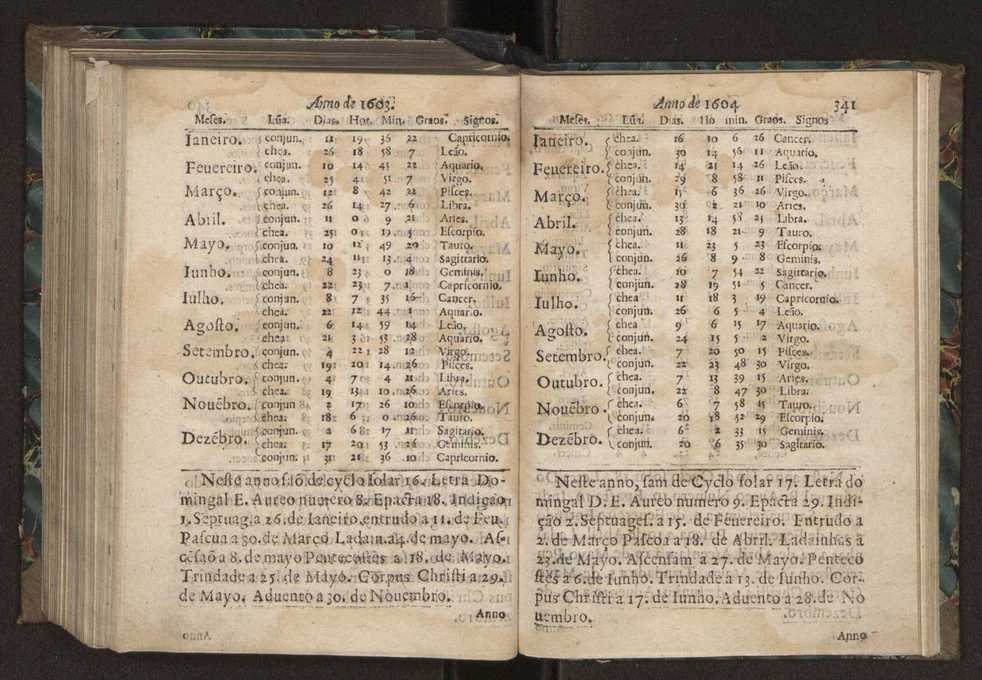 Anno de 1603.
Meses. Lũa. Dias. Hor. Min. Graos. Signos.
Ianeiro. conjun. 11 19 36 22 Capricornio.
chea. 26 18 58 7 Leão.
Feuereiro. conjun. 10 14 45 22 Aquario.
chea. 25 4 51 7 Virgo.
Março. conjun. 12 8 42 22 Pisces.
chea. 26 14 27 6 Libra.
Abiil. conjun. 11 0 9 21 Aries.
chea. 25 0 19 5 Escorpio.
Mayo. conjun. 10 12 49 20 Tauro.
chea. 24 11 13 Sagittario.
Iunho. conjun. 8 23 0 18 Geminis.
chea. 22 23 7 Capricornio.
Iulho. conjun. 8 7 35 16 Cancer.
chea. 22 12 44 1 Aquario.
Agosto. conjun. 6 14 59 14 Leão.
chea. 21 3 53 28 Aquario.
Setembro. conjun. 4 22 28 12 Virgo.
chea. 19 20 14 26 Pisces.
Outubro. conjun. 4 7 4 11 Libra.
chea. 19 13 10 26 Aries.
Nouẽbro. conjun 2 17 26 10 Escorpio.
chea. 18 6 0 26 Tauro.
Dezẽbro. conjun. 2 6 17 11 Sagitario.
chea. 17 20 53 26 Geminis.
conjun. 31 21 36 10 Capricornio.
Neste anno são de cyclo solar 16. Letra Do-
mingal E. Aureo numero 8. Epacta 18. Indição
1. Septuag. a 26. de Ianeiro entrudo a 11. de Feu.
Pascua a 30. de Março Ladain. a 4. de mayo. As-
cẽsaõ a 8. de mayo Pentecostes a 18. de Mayo.
Trindade a 25. de Mayo. Corpus Christi a 29.
de Mayo. Aduento a 30. de Nouembro.
Anno
Anno de 1604 341
Meses. Lũa. Dias. Ho min. Graos. Signos
Ianeiro. chea. 16 10 6 26 Cancer.
conjun. 30 14 56 11 Aquario.
Feuereiro. chea. 14 21 14 26 Leão.
conjun. 29 8 58 11 Pisces.
Março. chea. 15 6 36 26 Virgo.
conjun. 30 2 21 10 Aries.
Abril. chea. 13 14 58 25 Libra.
conjun. 28 18 21 9 Tauro.
Mayo. chea. 11 23 5 23 Escorpio.
conjun. 26 8 9 8 Geminis.
Iunho. chea. 10 7 54 22 Sagittario.
conjun. 28 19 51 5 Cancer.
Iulho. chea 11 18 3 19 Capricornio.
conjun. 26 6 5 4 Leão.
Agosto. chea 9 6 15 17 Aquario.
conjun. 24 15 5 2 Virgo.
Setembro. chea. 7 20 50 15 Pisces.
conjun. 22 23 48 30 Virgo.
Outubro. chea. 7 13 39 15 Aries.
conjun. 22 8 47 30 Libra.
Nouẽbro. chea. 6 7 58 15 Tauro.
conjun. 20 18 52 29 Escorpio.
Dezẽbro. chea. 6 2 33 15 Geminis.
conjun. 20 6 35 30 Sagitario.
Neste anno, sam de Cyclo solar 17. Letra do
mingal D. E. Aureo numero 9. Epacta 29. Indi-
ção 2. Septuages. a 15. de Feuereiro. Entrudo a
2. de Março Pascoa a 18. de Abril. Ladainhas a
23. de Mayo. Ascensam a 27. de Mayo. Penteco
stes a 6. de Iunho. Trindade a 13. de Iunho. Cor-
pus Christi a 17. de Iunho. Aduento a 28. de No
uembro.
Anno